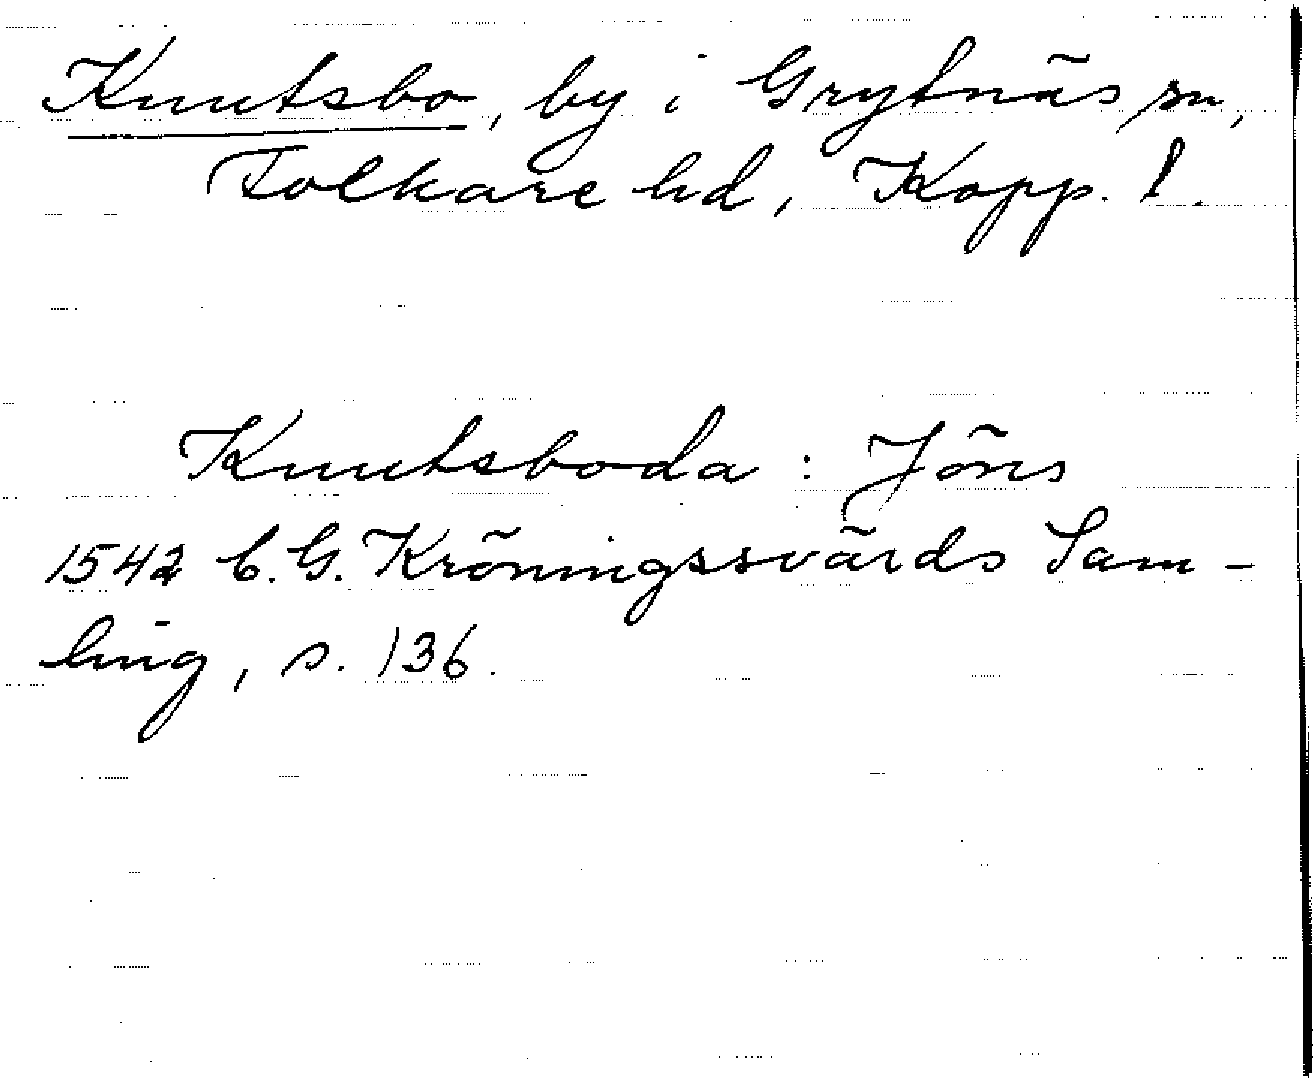 Knutsbo, by i Grytnäs sn,
Folkare hd, Kopp. l.
Knutsboda : Jöns
1542 C. G. Kröningssvärds Sam-
ling, s. 136.